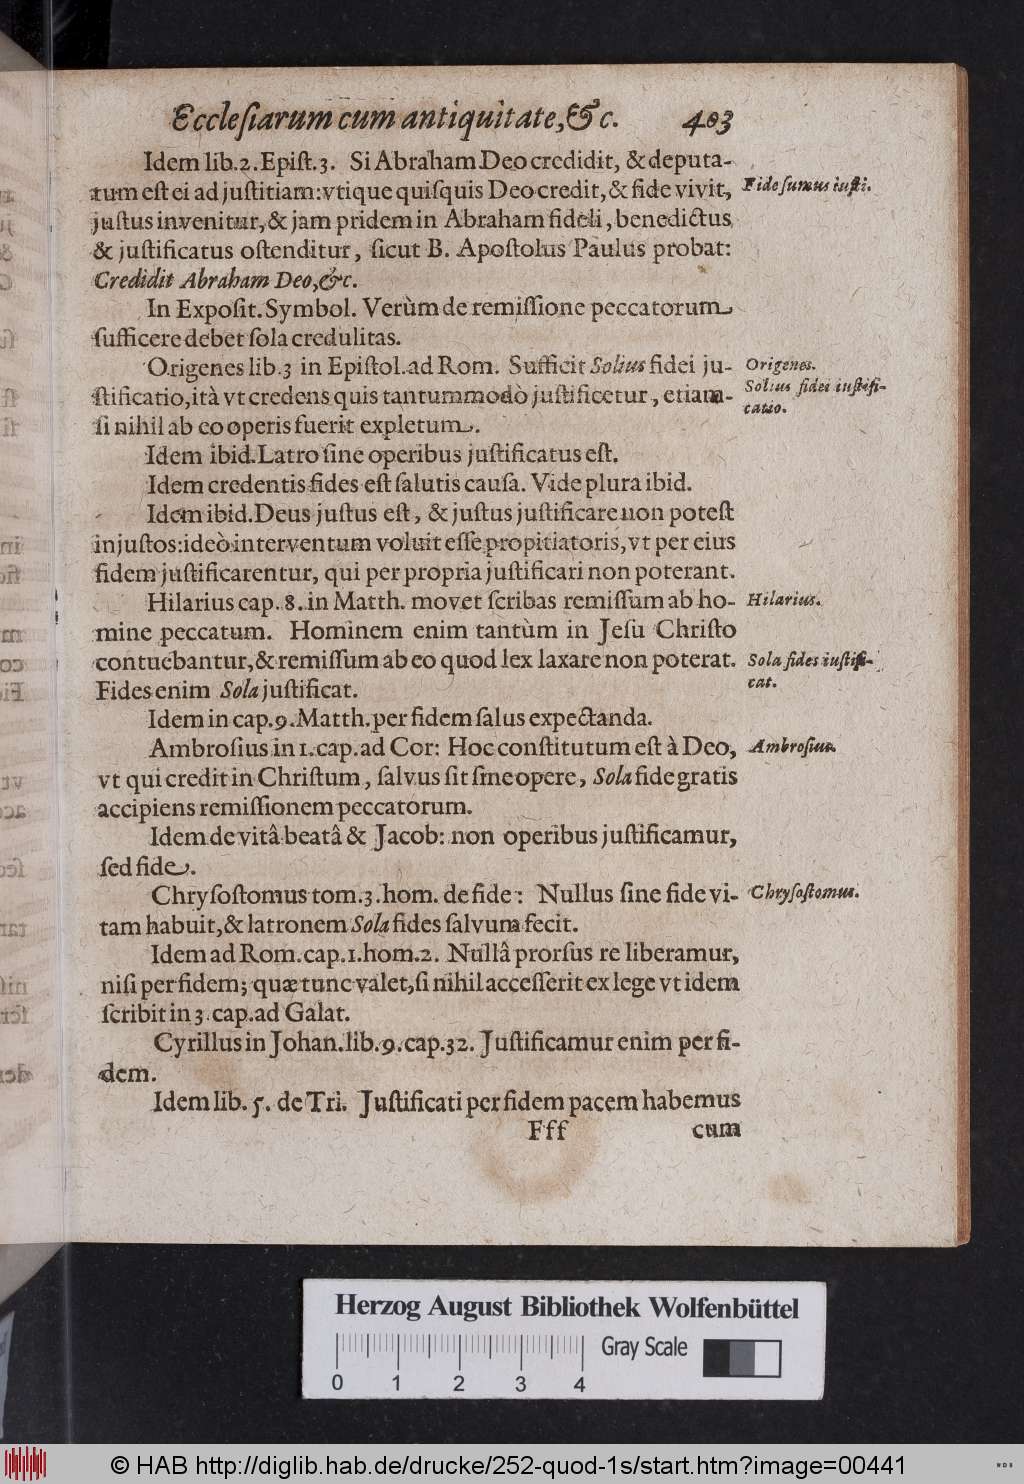 Ecclesiarum cum antiquitate, &c. 403
Idem lib. 2. Epist. 3. Si Abraham Deo credidit, & deputa-
tum est ei ad justitiam: vtique quisquis Deo credit, & fide vivit,
Fide sumus iusti.
justus invenitur, & jam pridem in Abraham fideli, benedictus
& justificatus ostenditur, sicut B. Apostolus Paulus probat:
Credidit Abraham Deo, &c.
In Exposit. Symbol. Verùm de remissione peccatorum
sufficere debet sola credulitas.
Origenes lib. 3 in Epistol. ad Rom. Sufficit Solius fidei ju-
Origenes.
stificatio, ità vt credens quis tantummodò justificetur, etiam-
Solius fidei iustifi-
catio.
si nihil ab eo operis fuerit expletum.
Idem ibid. Latro sine operibus justificatus est.
Idem credentis fides est salutis causa. Vide plura ibid.
Idem ibid. Deus justus est, & justus justificare non potest
injustos: ideò interventum voluit esse propitiatoris, vt per eius
fidem justificarentur, qui per propria justificari non poterant.
Hilarius cap. 8. in Matth. movet scribas remissum ab ho-
Hilarius.
mine peccatum. Hominem enim tantùm in Jesu Christo
contuebantur, & remissum ab eo quod lex laxare non poterat.
Sola fides iustifi-
cat.
Fides enim Sola justificat.
Idem in cap. 9. Matth. per fidem salus expectanda.
Ambrosius in 1. cap. ad Cor: Hoc constitutum est à Deo,
Ambrosius.
vt qui credit in Christum, salvus sit sine opere, Sola fide gratis
accipiens remissionem peccatorum.
Idem de vitâ beatâ & Jacob: non operibus justificamur,
sed fide.
Chrysostomus tom. 3. hom. de fide: Nullus sine fide vi-
Chrysostomus.
tam habuit, & latronem Sola fides salvum fecit.
Idem ad Rom. cap. 1. hom. 2. Nullâ prorsus re liberamur,
nisi per fidem; quæ tunc valet, si nihil accesserit ex lege vt idem
scribit in 3. cap. ad Galat.
Cyrillus in Johan. lib. 9. cap. 32. Justificamur enim per fi-
dem.
Idem lib. 5. de Tri. Justificati per fidem pacem habemus
Fff cum
Herzog August Bibliothek Wolfenbüttel
Gray Scale
0 1 2 3 4
© HAB http://diglib.hab.de/drucke/252-quod-1s/start.htm?image=00441